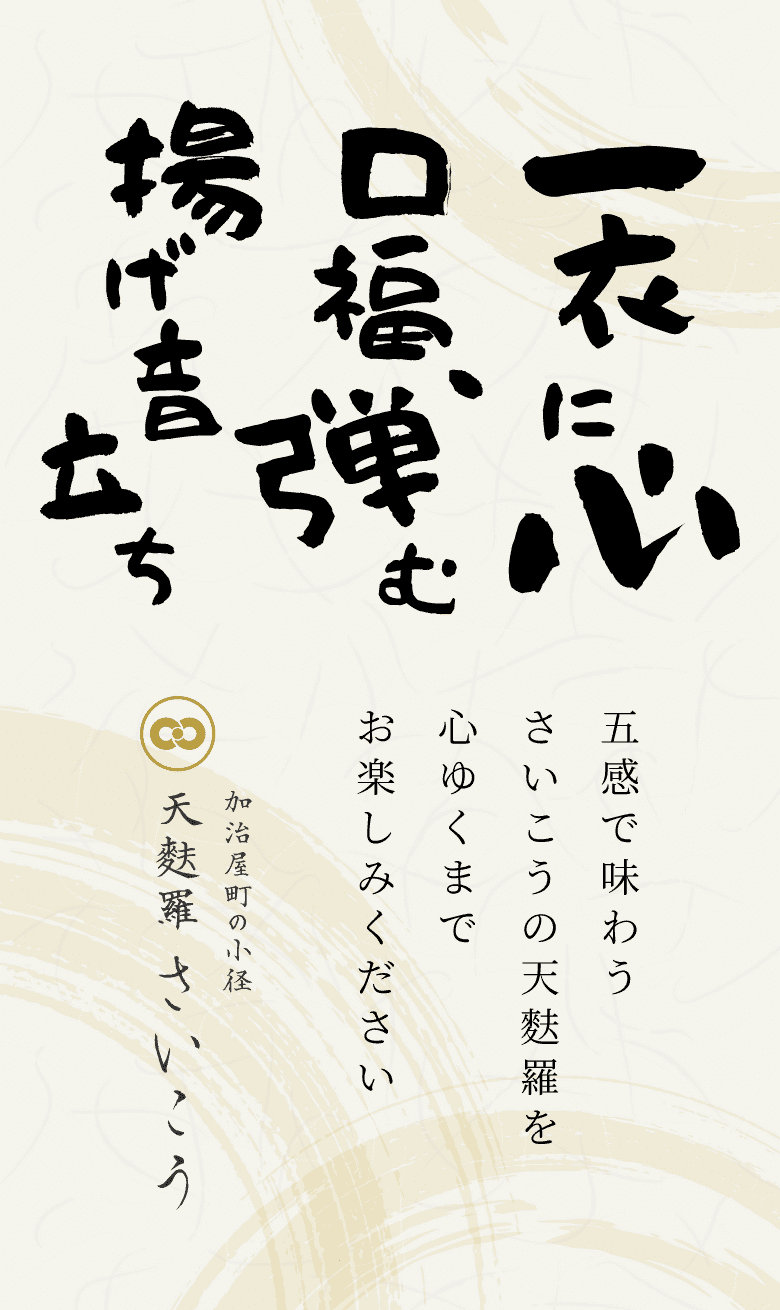 一衣に心
口福、弾む
揚げ音立ち
五感で味わう
さいこうの天麩羅を
心ゆくまで
お楽しみください
加治屋町の小径
天麩羅 さいこう